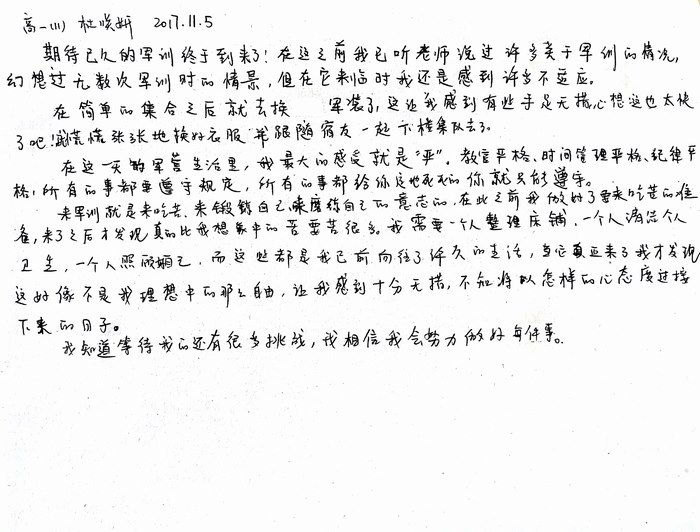 高一(1) 杜焕妍 2017.11.5
期待已久的军训终于到来了！在这之前我已听老师说过许多关于军训的情况，
幻想过无数次军训时的情景，但在它来临时我还是感到许多不适应。
在简单的集合之后就去换 军装了，这让我感到有些手足无措，心想这也太快
了吧！慌慌张张地换好衣服并跟随宿友一起下楼集队去了。
在这一天的军营生活里，我最大的感受就是“严”。教官严格、时间管理严格、纪律严
格，所有的事都要遵守规定，所有的事都给你定地死死的你就只能遵守。
来军训就是来吃苦、来锻炼自己、来磨练自己的意志的，在此之前我做好了要来吃苦的准
备，来了之后才发现真的比我想象中的苦要苦很多。我需要一个人整理床铺，一个人清洁个人
卫生，一个人照顾自己，而这些都是我已前向往了许久的生活，当它真正来了我才发现
这好像不是我理想中的那么自由，让我感到十分无措，不知将以怎样的心态度过接
下来的日子。
我知道等待我的还有很多挑战，我相信我会努力做好每件事。